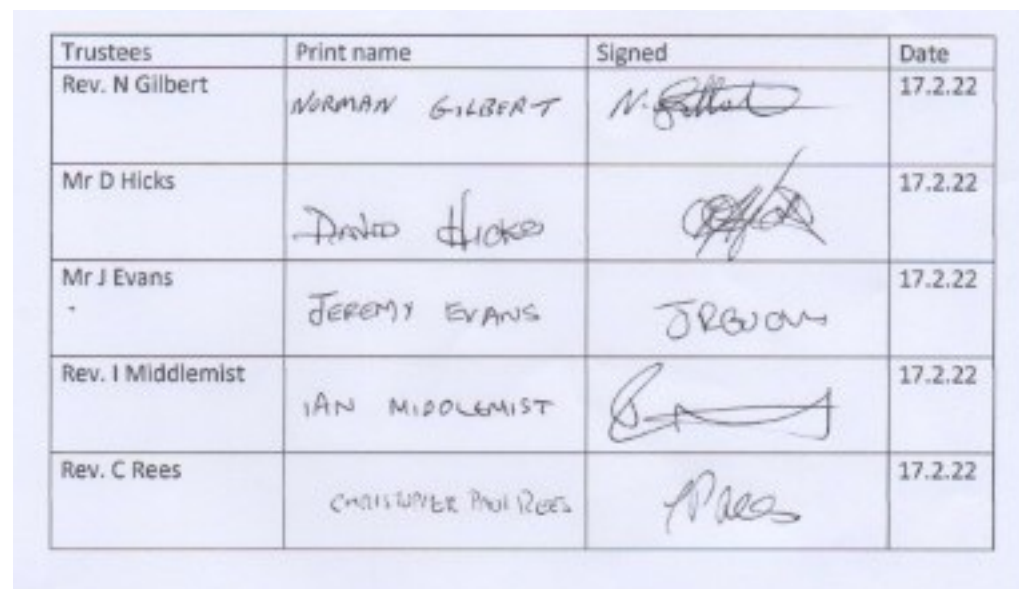 Trustees Print name Signed Date
Rev. N Gilbert NORMAN GILBERT N. Gilbert 17.2.22
Mr D Hicks DAVID HICKS 17.2.22
Mr J Evans JEREMY EVANS 17.2.22
Rev. I Middlemist IAN MIDDLEMIST 17.2.22
Rev. C Rees CHRISTOPHER PAUL REES 17.2.22